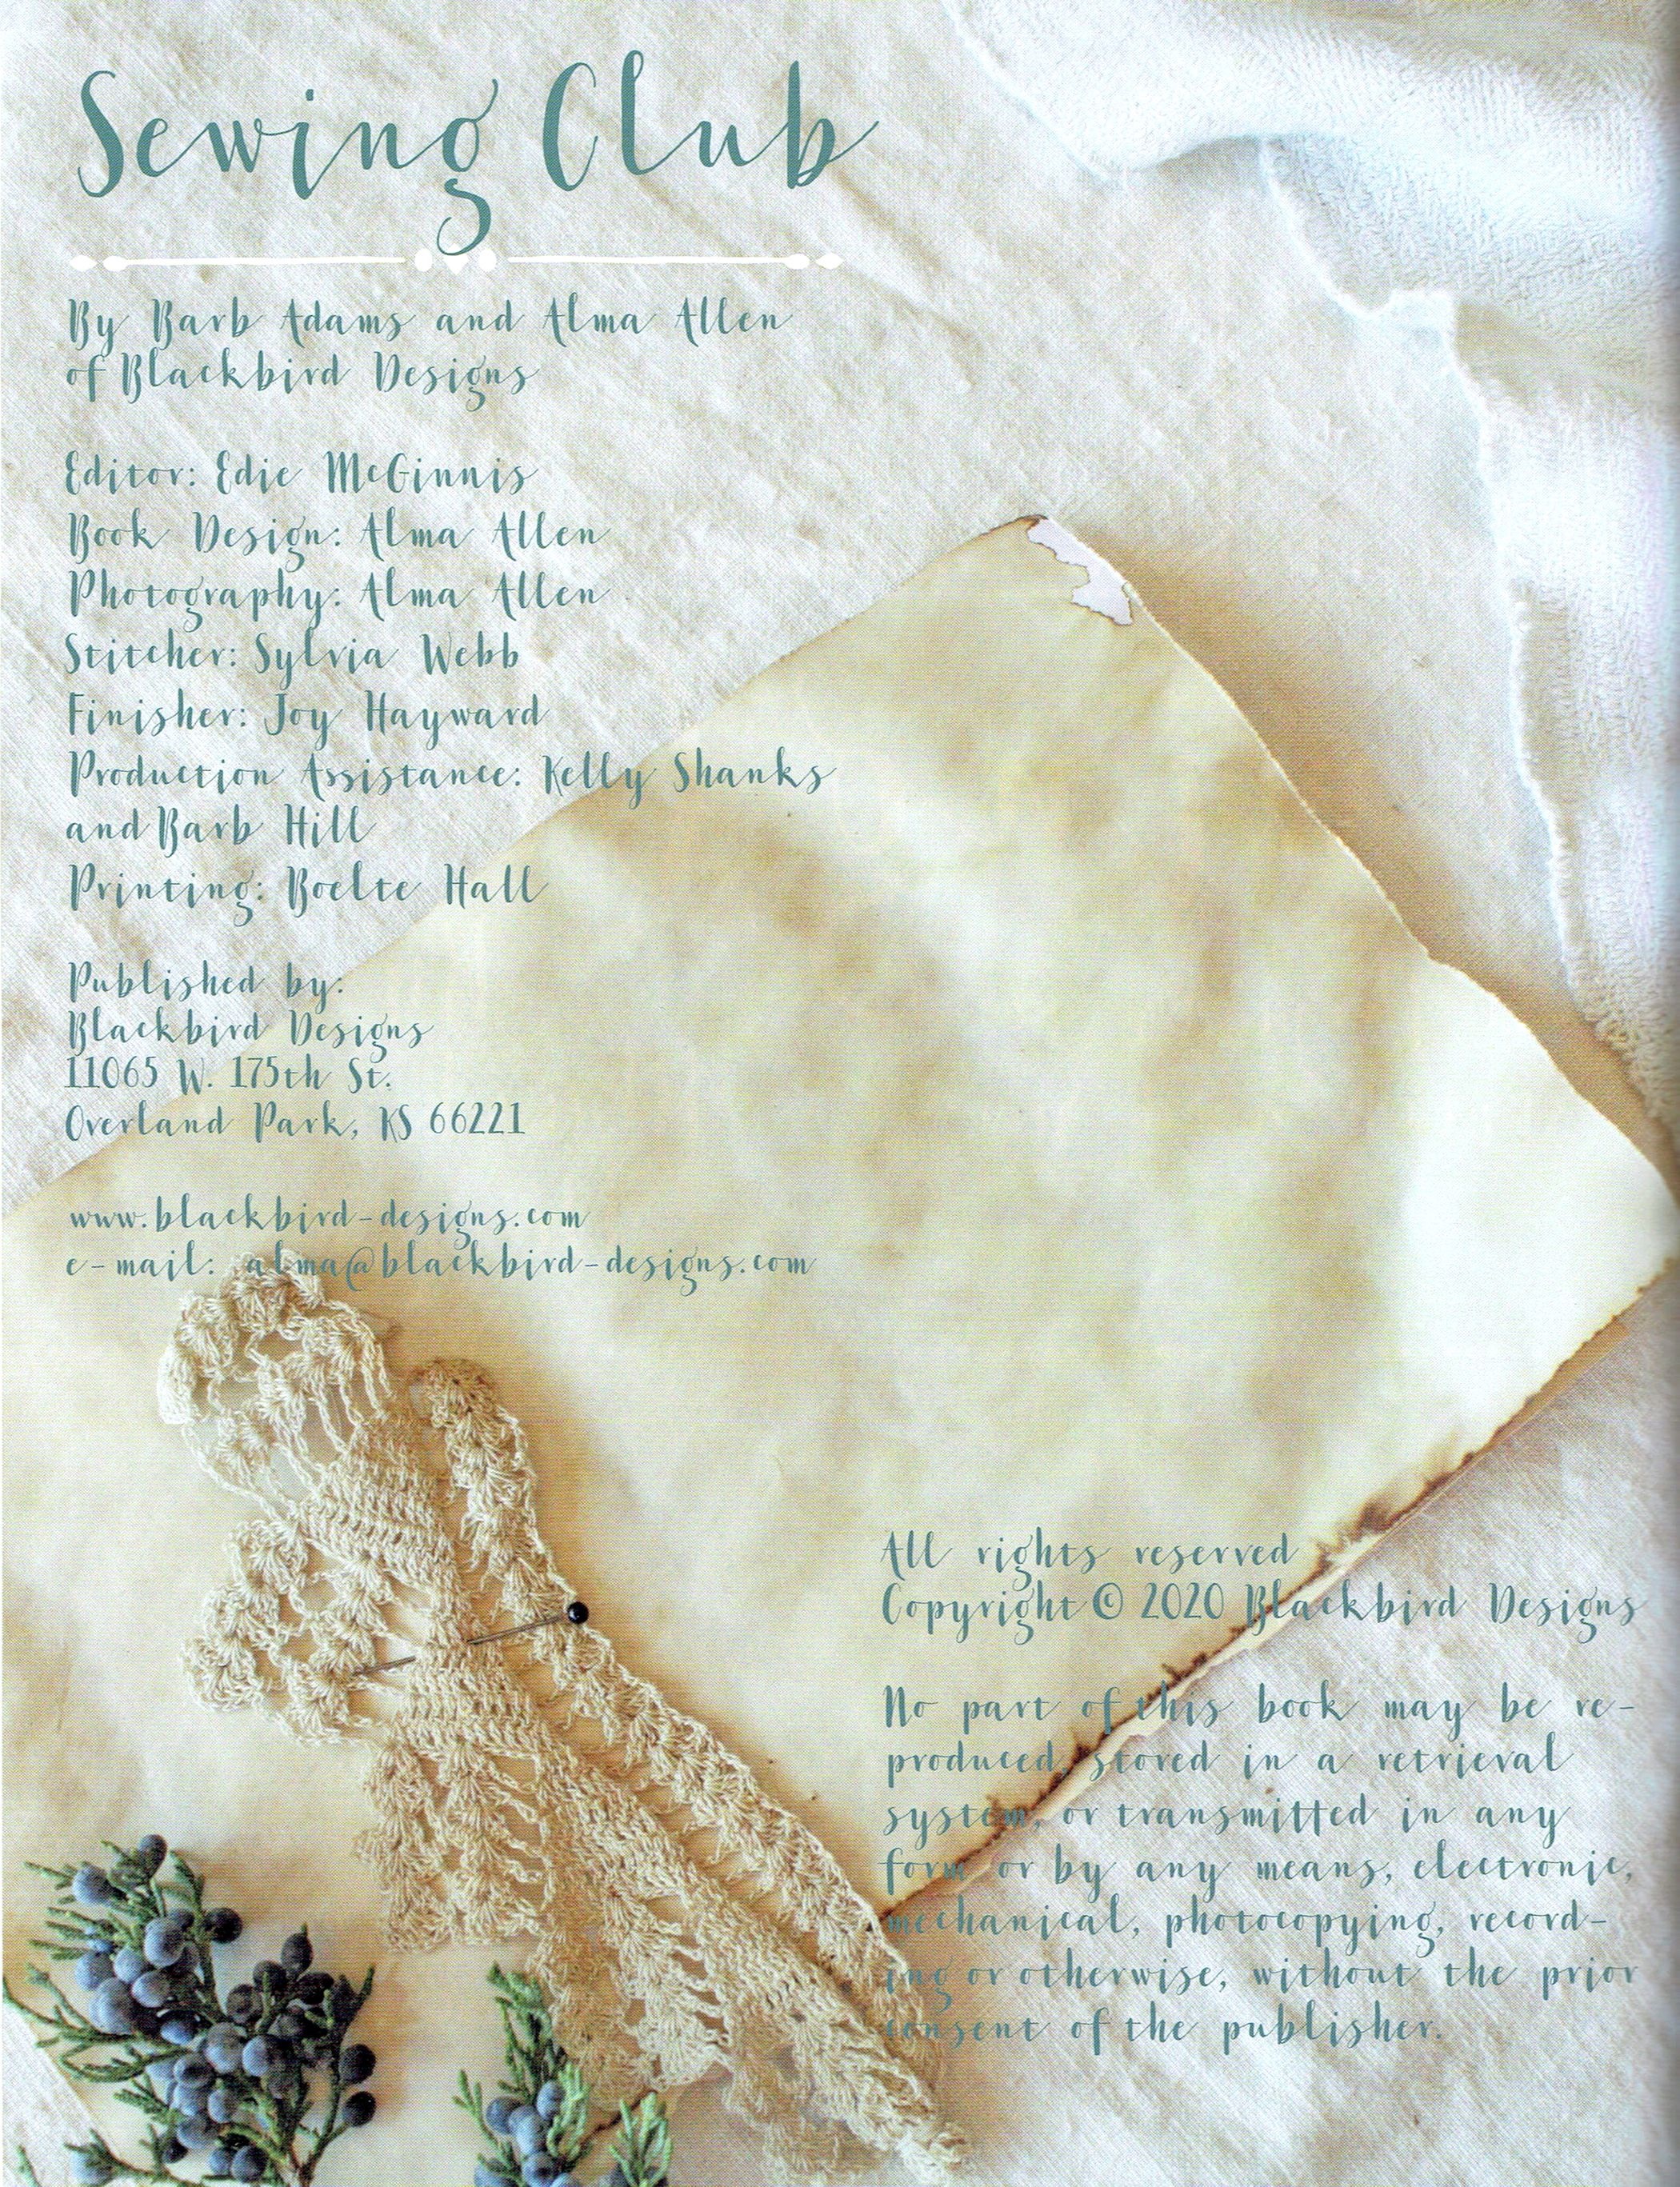 Sewing Club
By Barb Adams and Alma Allen
of Blackbird Designs
Editor: Edie McGinnis
Book Design: Alma Allen
Photography: Alma Allen
Stitcher: Sylvia Webb
Finisher: Joy Hayward
Production Assistance: Kelly Shanks
and Barb Hill
Printing: Boelte Hall
Published by:
Blackbird Designs
11065 W. 175th St.
Overland Park, KS 66221
www.blackbird-designs.com
e-mail: alma@blackbird-designs.com
All rights reserved
Copyright © 2020 Blackbird Designs
No part of this book may be re-
produced, stored in a retrieval
system, or transmitted in any
form or by any means, electronic,
mechanical, photocopying, record-
ing or otherwise, without the prior
consent of the publisher.